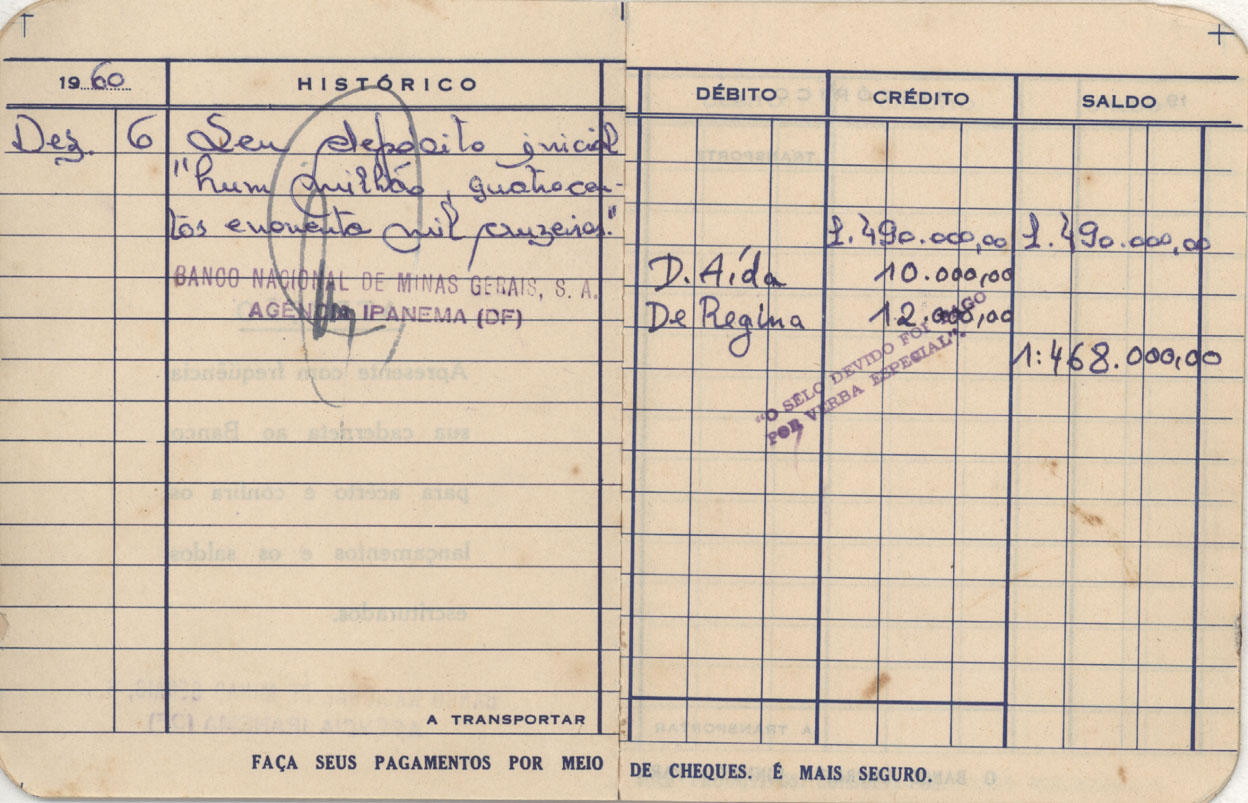 1960 HISTÓRICO DÉBITO CRÉDITO SALDO
Dez. 6 Seu depósito inicial
"hum milhão, quatrocen-
tos enoventa mil cruzeiros."
1.490.000,00 1.490.000,00
BANCO NACIONAL DE MINAS GERAIS, S. A.
AGENCIA IPANEMA (DF)
D. Aída 10.000,00
De Regina 12.000,00
1:468.000,00
"O SÊLO DEVIDO FOI PAGO
POR VERBA ESPECIAL".
Apresente com freqüência
sua caderneta ao Banco
para acêrto e confira os
lançamentos e os saldos
escriturados.
A TRANSPORTAR
FAÇA SEUS PAGAMENTOS POR MEIO DE CHEQUES. É MAIS SEGURO.